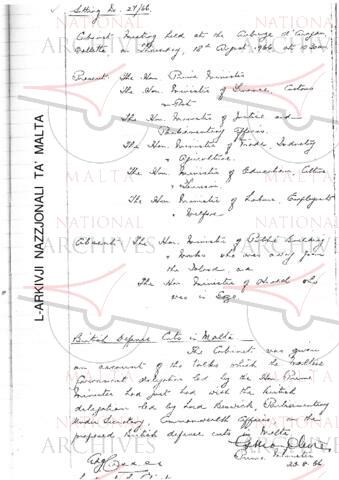 Sitting No. 27/66.
Cabinet Meeting held at the Auberge d'Aragon,
Valletta on Thursday, 18th August, 1966, at
Present: The Hon. Prime Minister
The Hon. Minister of Finance, Customs
& Port
The Hon. Minister of Justice and
Parliamentary Affairs.
The Hon. Minister of Trade, Industry
& Agriculture.
The Hon. Minister of Education, Culture
& Tourism
The Hon. Minister of Labour, Employment
& Welfare
Absent: The Hon. Minister of Public Building
& Works who was away from
the Island and
The Hon. Minister of Health who
was in Gozo.
British Defence Cuts in Malta
The Cabinet was given
an account of the talks which the Maltese
Government delegation led by the Hon. Prime
Minister had just had with the British
delegation led by Lord Beswick, Parliamentary
Under Secretary, Commonwealth Affairs, on the
proposed British defence cuts in Malta
Prime Minister
23.8.66
L-ARKIVJI NAZZJONALI TA' MALTA
NATIONAL
ARCHIVES
MALTA